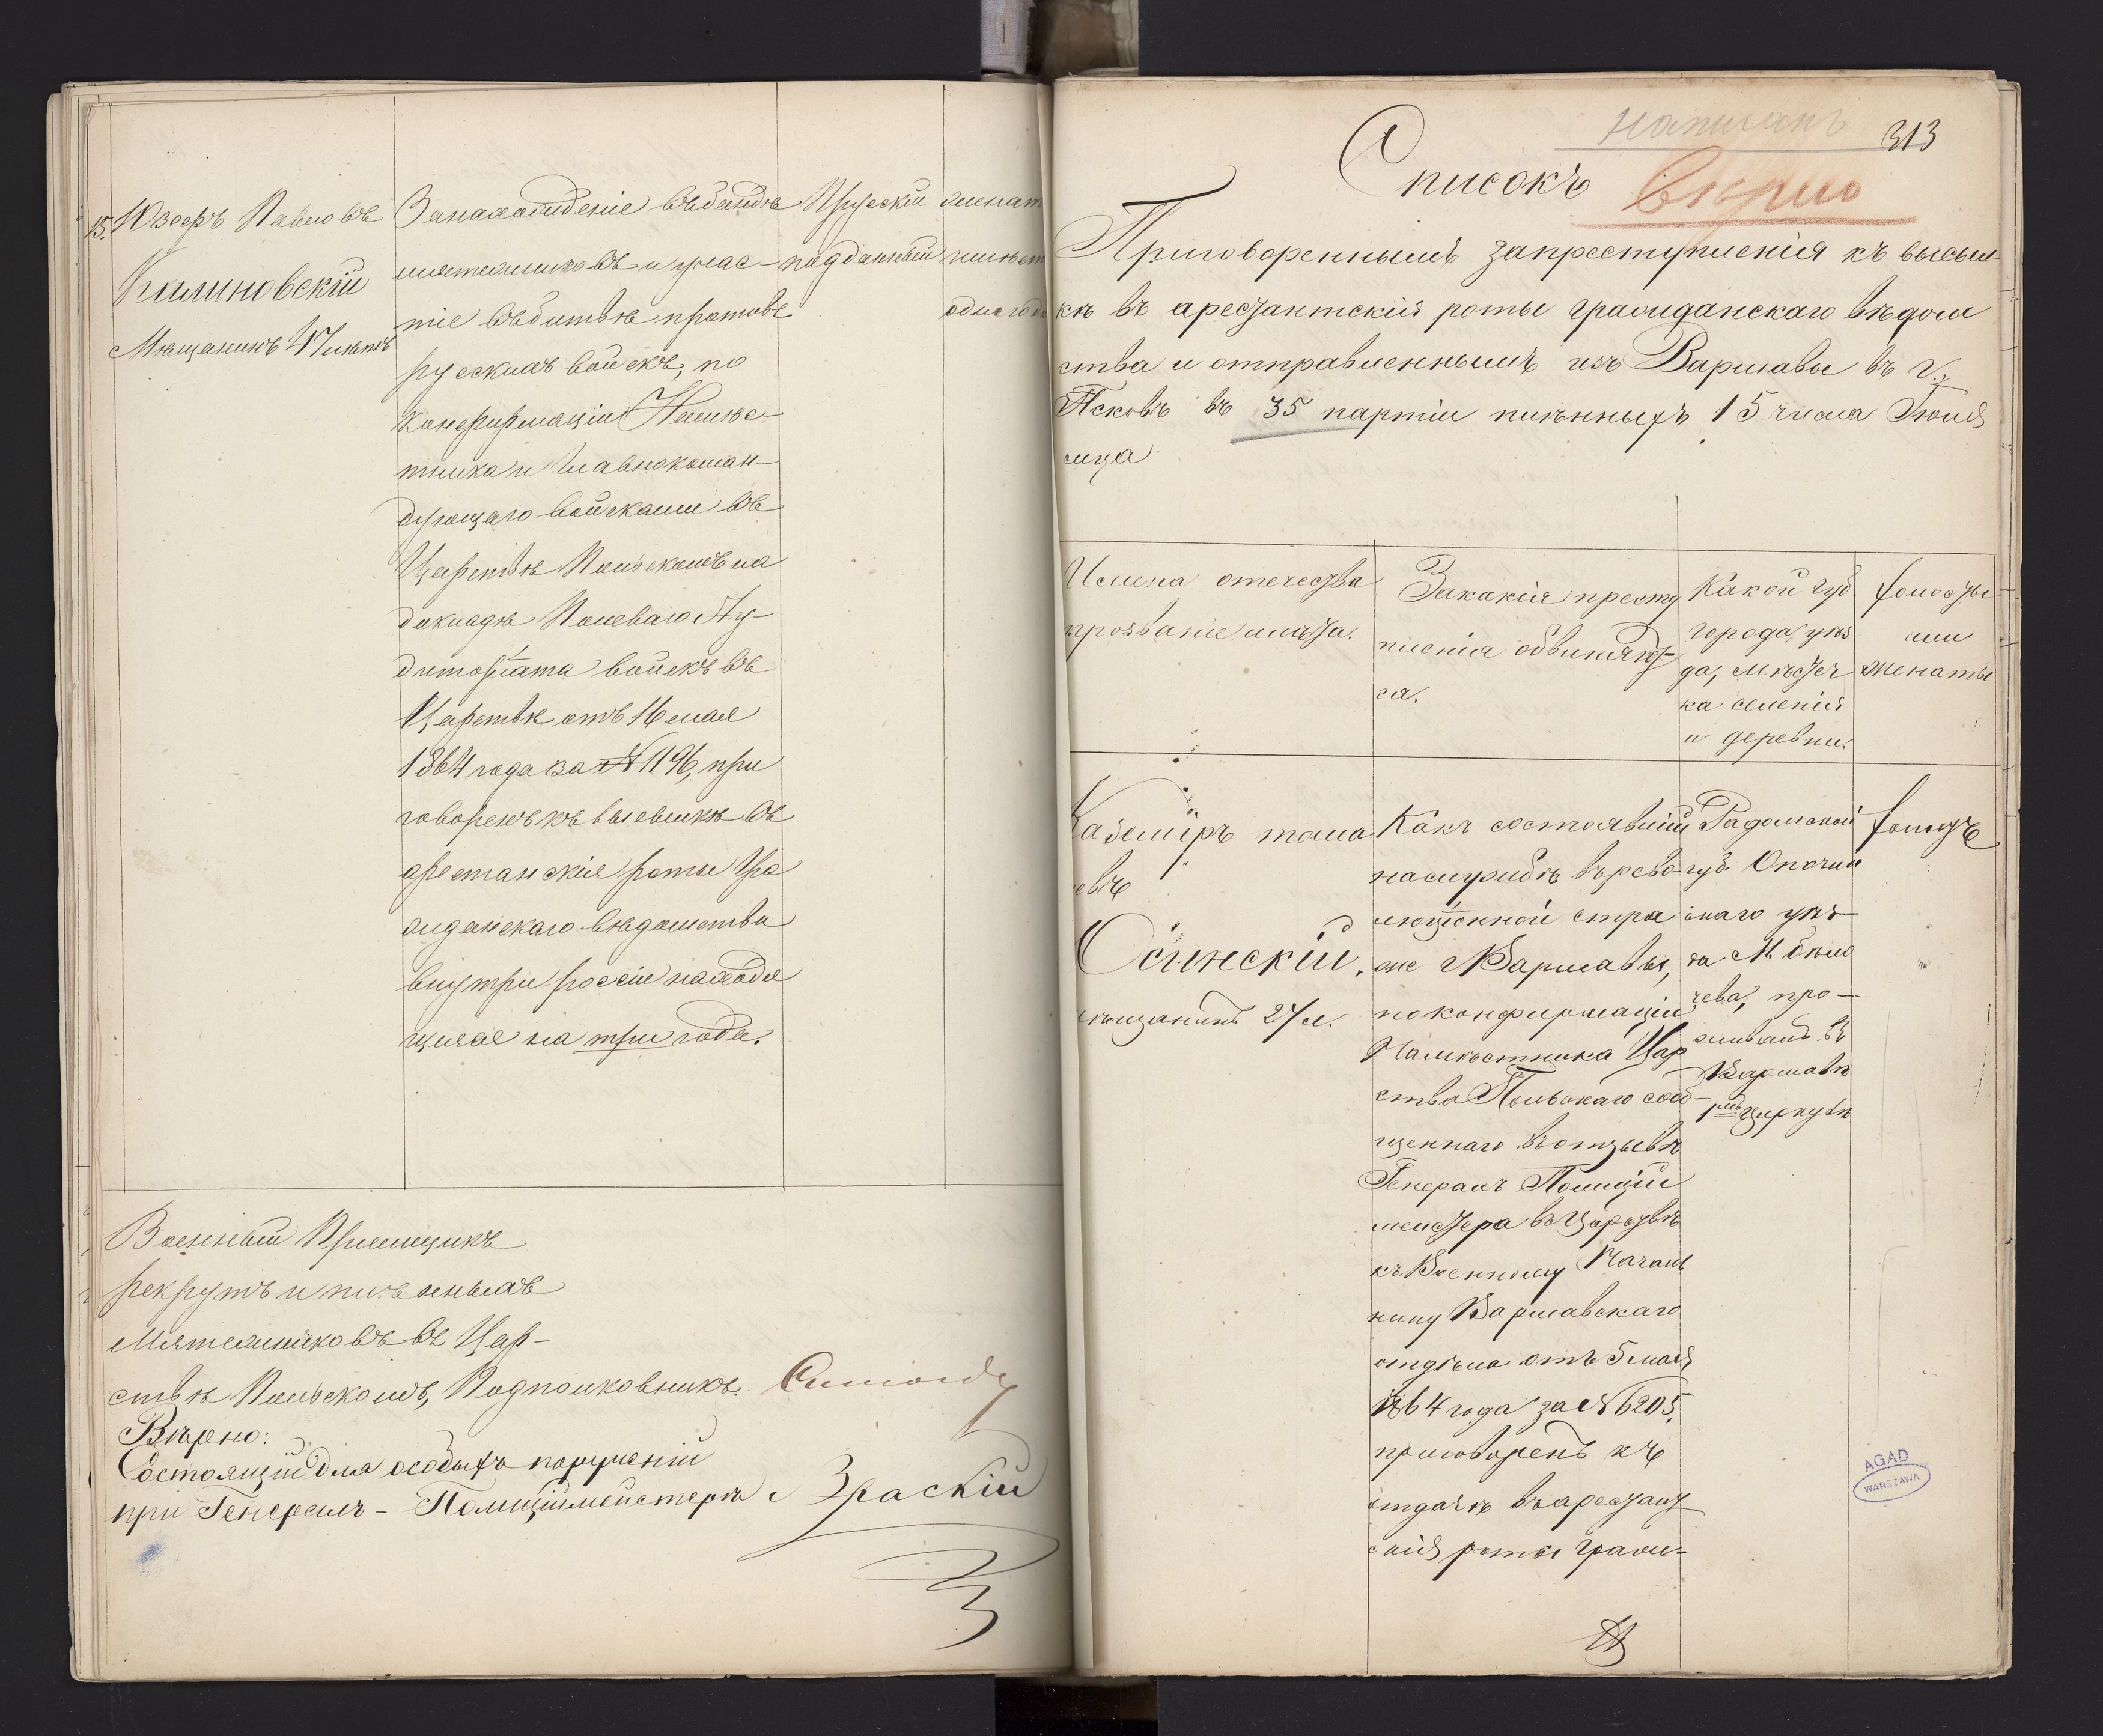 15. Юзефъ Павловъ
Калиновскій
Мѣщанинъ 47 лѣтъ
За нахожденіе въ бандѣ
мятежниковъ и учас-
тіе въ битвѣ противъ
русскихъ войскъ, по
конфирмаціи Намѣс-
тника и Главнокоман-
дующаго войсками въ
Царствѣ Польскомъ на
докладѣ Полеваго Ау-
диторіата войскъ въ
Царствѣ отъ 16 мая
1864 года за № 1196, при
говоренъ къ высылкѣ въ
арестанскіе роты Гра
жданскаго вѣдомства
внутри россіи находя
щіяся на три года.
Прусскій
подданный
женат
имѣет
одного
Военный Пріемщикъ
рекрутъ и плѣнныхъ
Мятежниковъ въ Цар-
ствѣ Польскомъ, Подполковникъ
Вѣрно:
Состоящій для особыхъ порученій
при Генералъ-Полиційместерѣ
313
Списокъ
Приговореннымъ за преступленія къ высыл-
кѣ въ арестантскія роты гражданскаго вѣдом
ства и отправленнымъ изъ Варшавы въ г.
Псковъ въ 35 партіи плѣнныхъ 15 числа Іюля
м-ца
Имена отечества
прозваніе и лѣта.
За какія престу
пленія обвиняют-
ся.
Какой губ.
города, уѣз
да, мѣстеч
ка селенія
и деревни.
холосты
или
женаты
Каземіръ тома
евъ
Осинскій.
мѣщанинъ 27 л.
Какъ состоявшій
на службѣ въ рево-
люціонной стра
же г Варшавы,
по конфирмаціи
Намѣстника Цар
ства Польскаго сооб-
щеннаго въ отзывѣ
Генералъ Полицій
мейстера въ Царствѣ
къ Военному Началь
нику Варшавскаго
отдѣла отъ 5 мая
1864 года за № 6205,
приговоренъ къ
отдачѣ въ арестант
скія роты Граж-
Радомской
губ. Опочин
скаго уѣз-
да М. бѣло
чева, про-
живалъ въ
Варшавѣ
циркулѣ
холостъ
AGAD
WARSZAWA